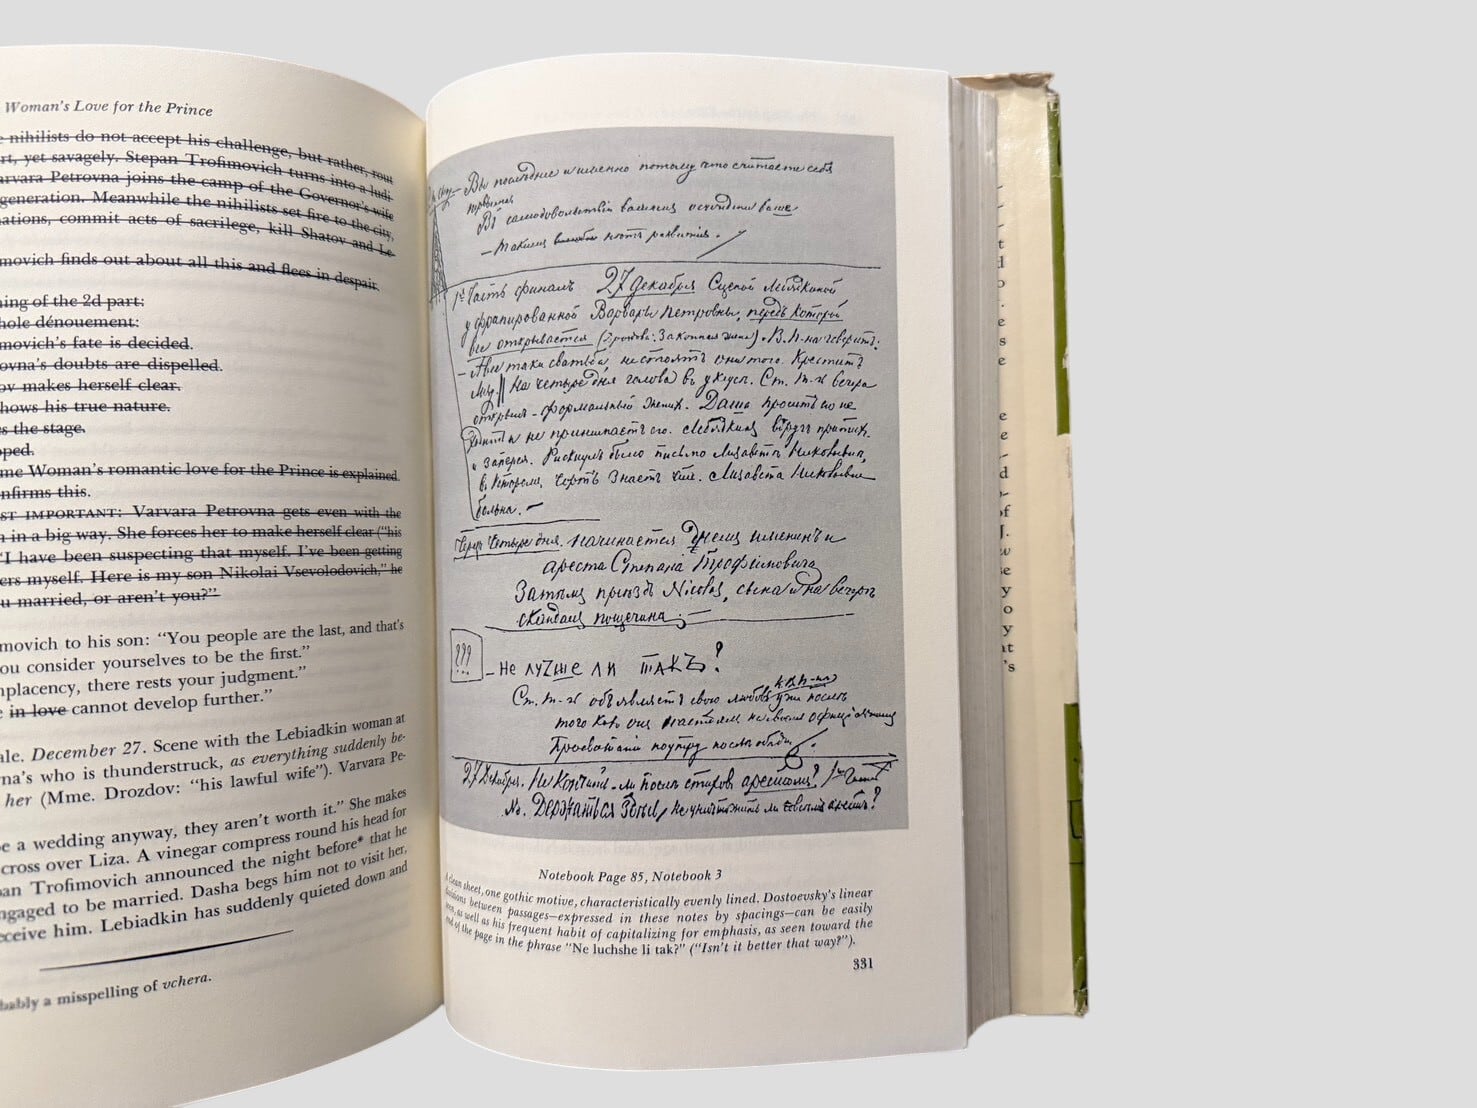 Woman's Love for the Prince
e nihilists do not accept his challenge, but rather, rout
rt, yet savagely. Stepan Trofimovich turns into a ludi-
arvara Petrovna joins the camp of the Governor's wife
generation. Meanwhile the nihilists set fire to the city,
nations, commit acts of sacrilege, kill Shatov and Le-
imovich finds out about all this and flees in despair.
ning of the 2d part:
hole dénouement:
movich's fate is decided.
ovna's doubts are dispelled.
ov makes herself clear.
hows his true nature.
es the stage.
oped.
me Woman's romantic love for the Prince is explained
nfirms this.
ST IMPORTANT: Varvara Petrovna gets even with the
n in a big way. She forces her to make herself clear ("his
"I have been suspecting that myself. I've been getting
ers myself. Here is my son Nikolai Vsevolodovich," he
u married, or aren't you?"
imovich to his son: "You people are the last, and that's
ou consider yourselves to be the first."
mplacency, there rests your judgment."
e in love cannot develop further."
ale. December 27. Scene with the Lebiadkin woman at
rna's who is thunderstruck, as everything suddenly be-
her (Mme. Drozdov: "his lawful wife"). Varvara Pe-
be a wedding anyway, they aren't worth it." She makes
cross over Liza. A vinegar compress round his head for
pan Trofimovich announced the night before* that he
ngaged to be married. Dasha begs him not to visit her,
eceive him. Lebiadkin has suddenly quieted down and
bably a misspelling of vchera.
— Вы последние и именно потому что считаете себя
первыми
Въ самодовольствіи вашемъ осужденіе ваше
— Такимъ нѣтъ развитія.
1я Часть финалъ 27 декабря Сценой Лебядкиной
у фрапированной Варвары Петровны, передъ которой
все открывается (Дроздова: Законная жена). В. П-на говоритъ:
— Аве таки свадьба, не стоятъ они того. Креститъ
Лизу || На четыре дня голова въ уксусѣ. Ст. Т-ч вечера
открылъ – формальный женихъ. Даша проситъ его не
и не принимаетъ его. Лебядкинъ вдругъ притихъ
и заперся. было письмо Лизаветѣ Николаевнѣ,
въ которомъ, чортъ знаетъ что. Лизавета Николаевна
больна. —
Черезъ четыре дня. начинается днемъ именинъ и
ареста Степана Трофимовича
Затѣмъ пріѣздъ Nicolas, сына и на вечерѣ
скандалъ пощечина. —
??? — НЕ ЛУЧШЕ ЛИ ТАКЪ?
Ст. Т-ч объявляетъ свою любовь к В. П-нѣ уже послѣ
того какъ она настояла на своемъ
поутру послѣ обѣда.
27 Декабря. Не Кончить-ли послѣ стиховъ арестомъ? 1ая Часть
No. Держаться Зоны, не уничтожить ли совсѣмъ арестъ?
Notebook Page 85, Notebook 3
A clean sheet, one gothic motive, characteristically evenly lined. Dostoevsky's linear
divisions between passages—expressed in these notes by spacings—can be easily
seen, as well as his frequent habit of capitalizing for emphasis, as seen toward the
end of the page in the phrase "Ne luchshe li tak?" ("Isn't it better that way?").
331